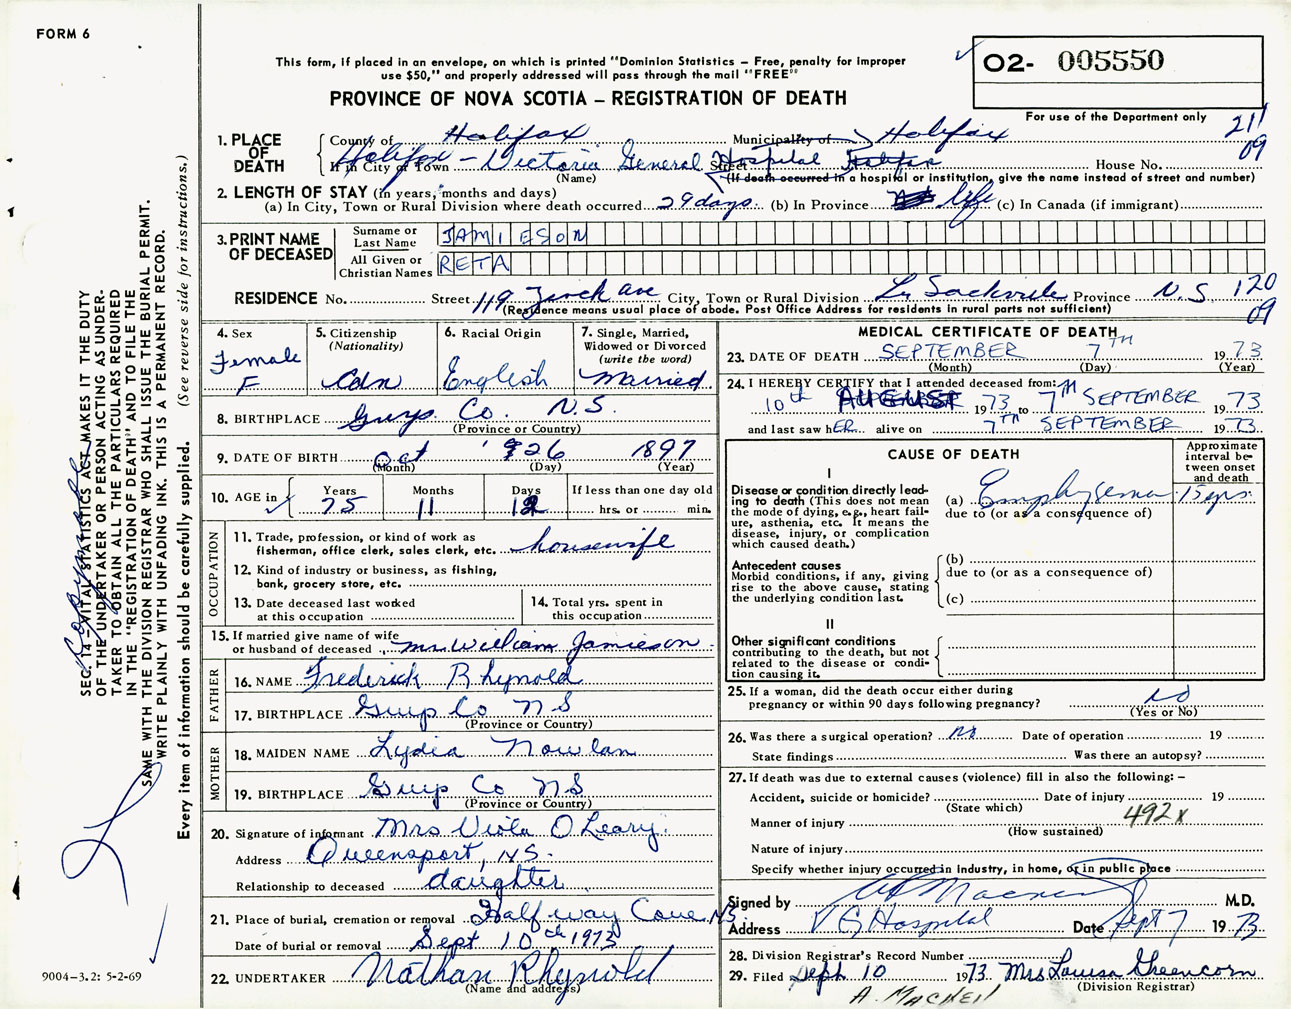 FORM 6
This form, if placed in an envelope, on which is printed "Dominion Statistics – Free, penalty for improper
use $50," and properly addressed will pass through the mail "FREE"
PROVINCE OF NOVA SCOTIA – REGISTRATION OF DEATH
O2- 005550
For use of the Department only
211
09
1. PLACE OF DEATH
County of Halifax Municipality of Halifax
If in City or Town Halifax – Victoria General Hospital Street Halifax House No.
(Name) (If death occurred in a hospital or institution, give the name instead of street and number)
2. LENGTH OF STAY (in years, months and days)
(a) In City, Town or Rural Division where death occurred 29 days (b) In Province life (c) In Canada (if immigrant)
3. PRINT NAME OF DECEASED
Surname or Last Name JAMIESON
All Given or Christian Names RETA
RESIDENCE No. Street 119 Ave City, Town or Rural Division Lr Sackville Province N.S. 120
(Residence means usual place of abode. Post Office Address for residents in rural parts not sufficient) 09
4. Sex Female F
5. Citizenship (Nationality) Cdn
6. Racial Origin English
7. Single, Married, Widowed or Divorced (write the word) Married
8. BIRTHPLACE Guys. Co. N.S.
(Province or Country)
9. DATE OF BIRTH Oct 26 1897
(Month) (Day) (Year)
10. AGE in ✓ Years 75 Months 11 Days 12 If less than one day old hrs. or min.
OCCUPATION
11. Trade, profession, or kind of work as
fisherman, office clerk, sales clerk, etc. housewife
12. Kind of industry or business, as fishing,
bank, grocery store, etc.
13. Date deceased last worked
at this occupation
14. Total yrs. spent in
this occupation
15. If married give name of wife
or husband of deceased Mr. William Jamieson
FATHER
16. NAME Frederick Rhynold
17. BIRTHPLACE Guys Co NS
(Province or Country)
MOTHER
18. MAIDEN NAME Lydia Nowlan
19. BIRTHPLACE Guys Co NS
(Province or Country)
20. Signature of informant Mrs Viola O'Leary
Address Queensport, N.S.
Relationship to deceased daughter
21. Place of burial, cremation or removal Half way Cove, NS
Date of burial or removal Sept 10th 1973
22. UNDERTAKER Nathan Rhynold
(Name and address)
MEDICAL CERTIFICATE OF DEATH
23. DATE OF DEATH SEPTEMBER 7TH 1973
(Month) (Day) (Year)
24. I HEREBY CERTIFY that I attended deceased from:
10th AUGUST 1973 to 7TH SEPTEMBER 1973
and last saw hER alive on 7TH SEPTEMBER 1973
CAUSE OF DEATH
Approximate interval between onset and death
I
Disease or condition directly leading to death (This does not mean the mode of dying, e.g., heart failure, asthenia, etc. It means the disease, injury, or complication which caused death.)
(a) Emphysema 15 yrs.
due to (or as a consequence of)
Antecedent causes
Morbid conditions, if any, giving rise to the above cause, stating the underlying condition last.
(b)
due to (or as a consequence of)
(c)
II
Other significant conditions
contributing to the death, but not related to the disease or condition causing it.
25. If a woman, did the death occur either during
pregnancy or within 90 days following pregnancy? No
(Yes or No)
26. Was there a surgical operation? No Date of operation 19
State findings Was there an autopsy?
27. If death was due to external causes (violence) fill in also the following: –
Accident, suicide or homicide? Date of injury 19
(State which)
Manner of injury 492x
(How sustained)
Nature of injury
Specify whether injury occurred in Industry, in home, or in public place
Signed by M.D.
Address V G Hospital Date Sept 7 1973
28. Division Registrar's Record Number
29. Filed Sept 10 1973 Mrs Louisa Greencorn
(Division Registrar)
A. MACNEIL
SEC. 14 – VITAL STATISTICS ACT MAKES IT THE DUTY
OF THE UNDERTAKER OR PERSON ACTING AS UNDER-
TAKER TO OBTAIN ALL THE PARTICULARS REQUIRED
IN THE "REGISTRATION OF DEATH" AND TO FILE THE
SAME WITH THE DIVISION REGISTRAR WHO SHALL ISSUE THE BURIAL PERMIT.
WRITE PLAINLY WITH UNFADING INK. THIS IS A PERMANENT RECORD.
Every item of information should be carefully supplied. (See reverse side for instructions.)
9004–3.2: 5-2-69